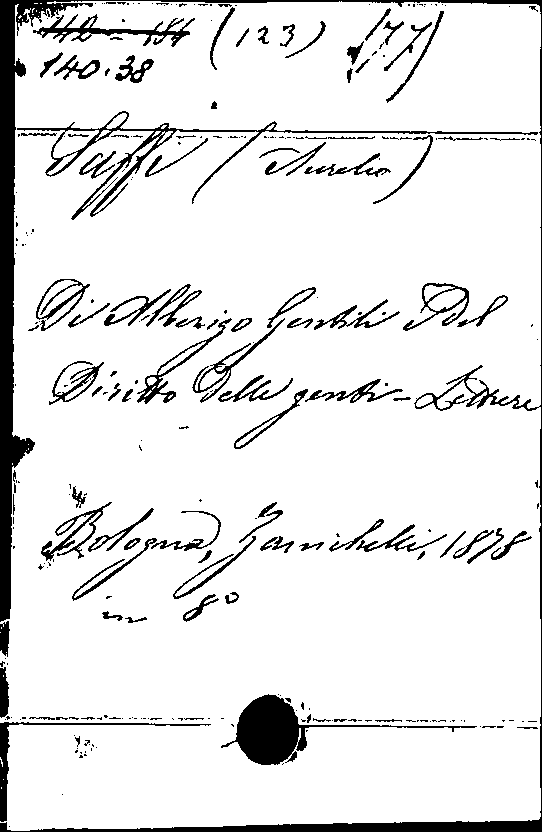 142 - 184 (123) (77)
140.38
Saffi (Aurelio)
Di Alberigo Gentili e del
Diritto delle genti - Letture
Bologna, Zanichelli, 1878
in 8°